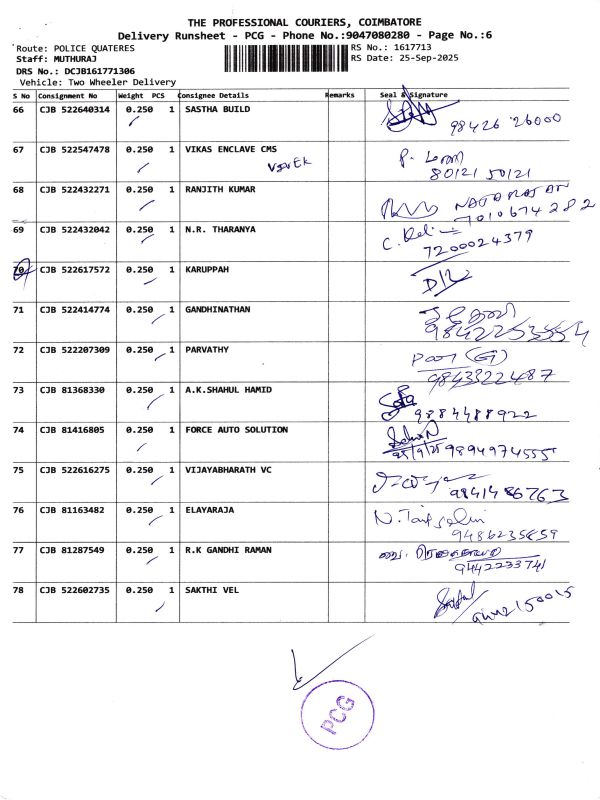 THE PROFESSIONAL COURIERS, COIMBATORE
Delivery Runsheet - PCG - Phone No.:9047080280 - Page No.:6
Route: POLICE QUATERES RS No.: 1617713
Staff: MUTHURAJ RS Date: 25-Sep-2025
DRS No.: DCJB161771306
Vehicle: Two Wheeler Delivery
S No Consignment No Weight PCS Consignee Details Remarks Seal & Signature
66 CJB 522640314 0.250 1 SASTHA BUILD 98426 26000
67 CJB 522547478 0.250 1 VIKAS ENCLAVE CMS
80121 50121
68 CJB 522432271 0.250 1 RANJITH KUMAR NATARAJAN
7010674282
69 CJB 522432042 0.250 1 N.R. THARANYA
7200024379
70 CJB 522617572 0.250 1 KARUPPAH
71 CJB 522414774 0.250 1 GANDHINATHAN
72 CJB 522207309 0.250 1 PARVATHY
9843322487
73 CJB 81368330 0.250 1 A.K.SHAHUL HAMID
9884488922
74 CJB 81416805 0.250 1 FORCE AUTO SOLUTION
25/9/25 9894974555
75 CJB 522616275 0.250 1 VIJAYABHARATH VC
9841486763
76 CJB 81163482 0.250 1 ELAYARAJA
9486235859
77 CJB 81287549 0.250 1 R.K GANDHI RAMAN
9442233741
78 CJB 522602735 0.250 1 SAKTHI VEL
PCG